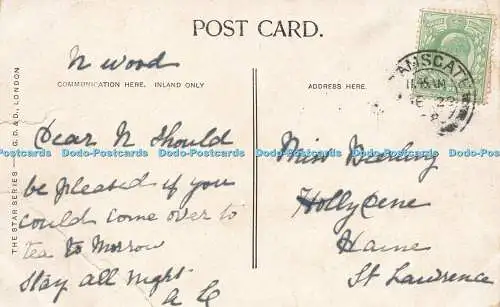 POST CARD.
N Wood
COMMUNICATION HERE. INLAND ONLY
ADDRESS HERE.
THE STAR SERIES
G. D. & D., LONDON
Dear N Should
be pleased if you
could come over to
tea to Morrow
Stay all night.
Miss
Hollydene
Haine
St Lawrence
AMSGAT
Dodo-Postcards Dodo-Postcards Dodo-Postcards Dodo-Postcards Dodo-Postcards
Dodo-Postcards Dodo-Postcards Dodo-Postcards Dodo-Postcards Dodo-Postcards